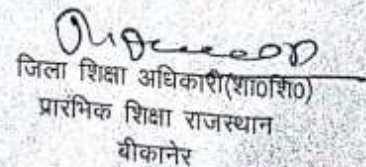 जिला शिक्षा अधिकारी(शा०शि०)
प्रारंभिक शिक्षा राजस्थान
बीकानेर